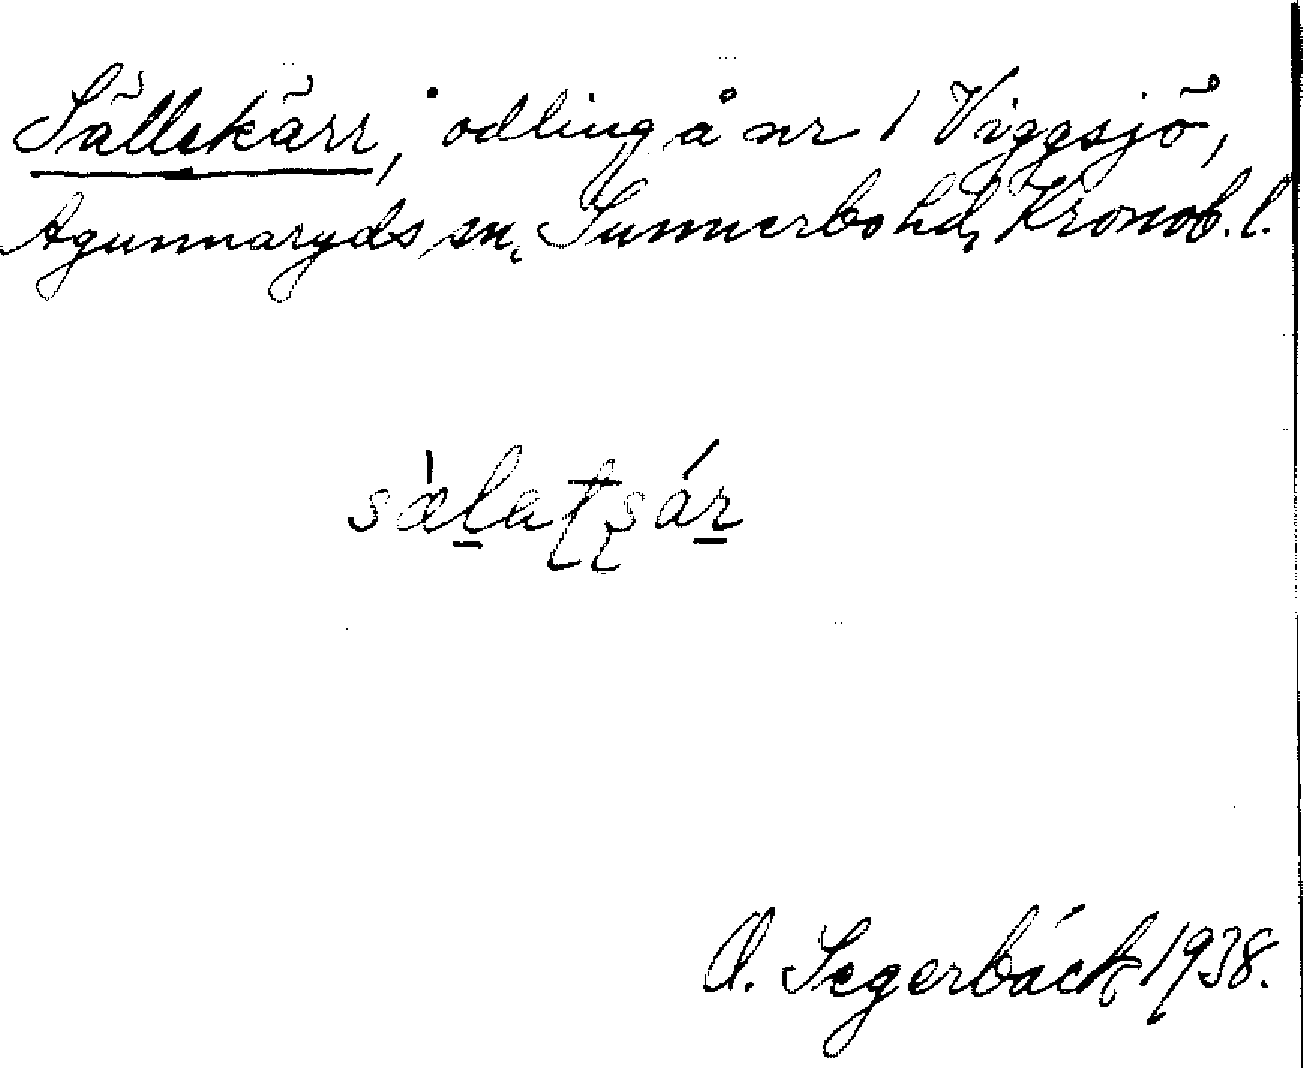 Sällekärr, odling å nr 1 Viggsjö,
Agunnaryds sn, Sunnerbo hd, Kronob. l.
sælatsár
O. Segerbäck 1938.